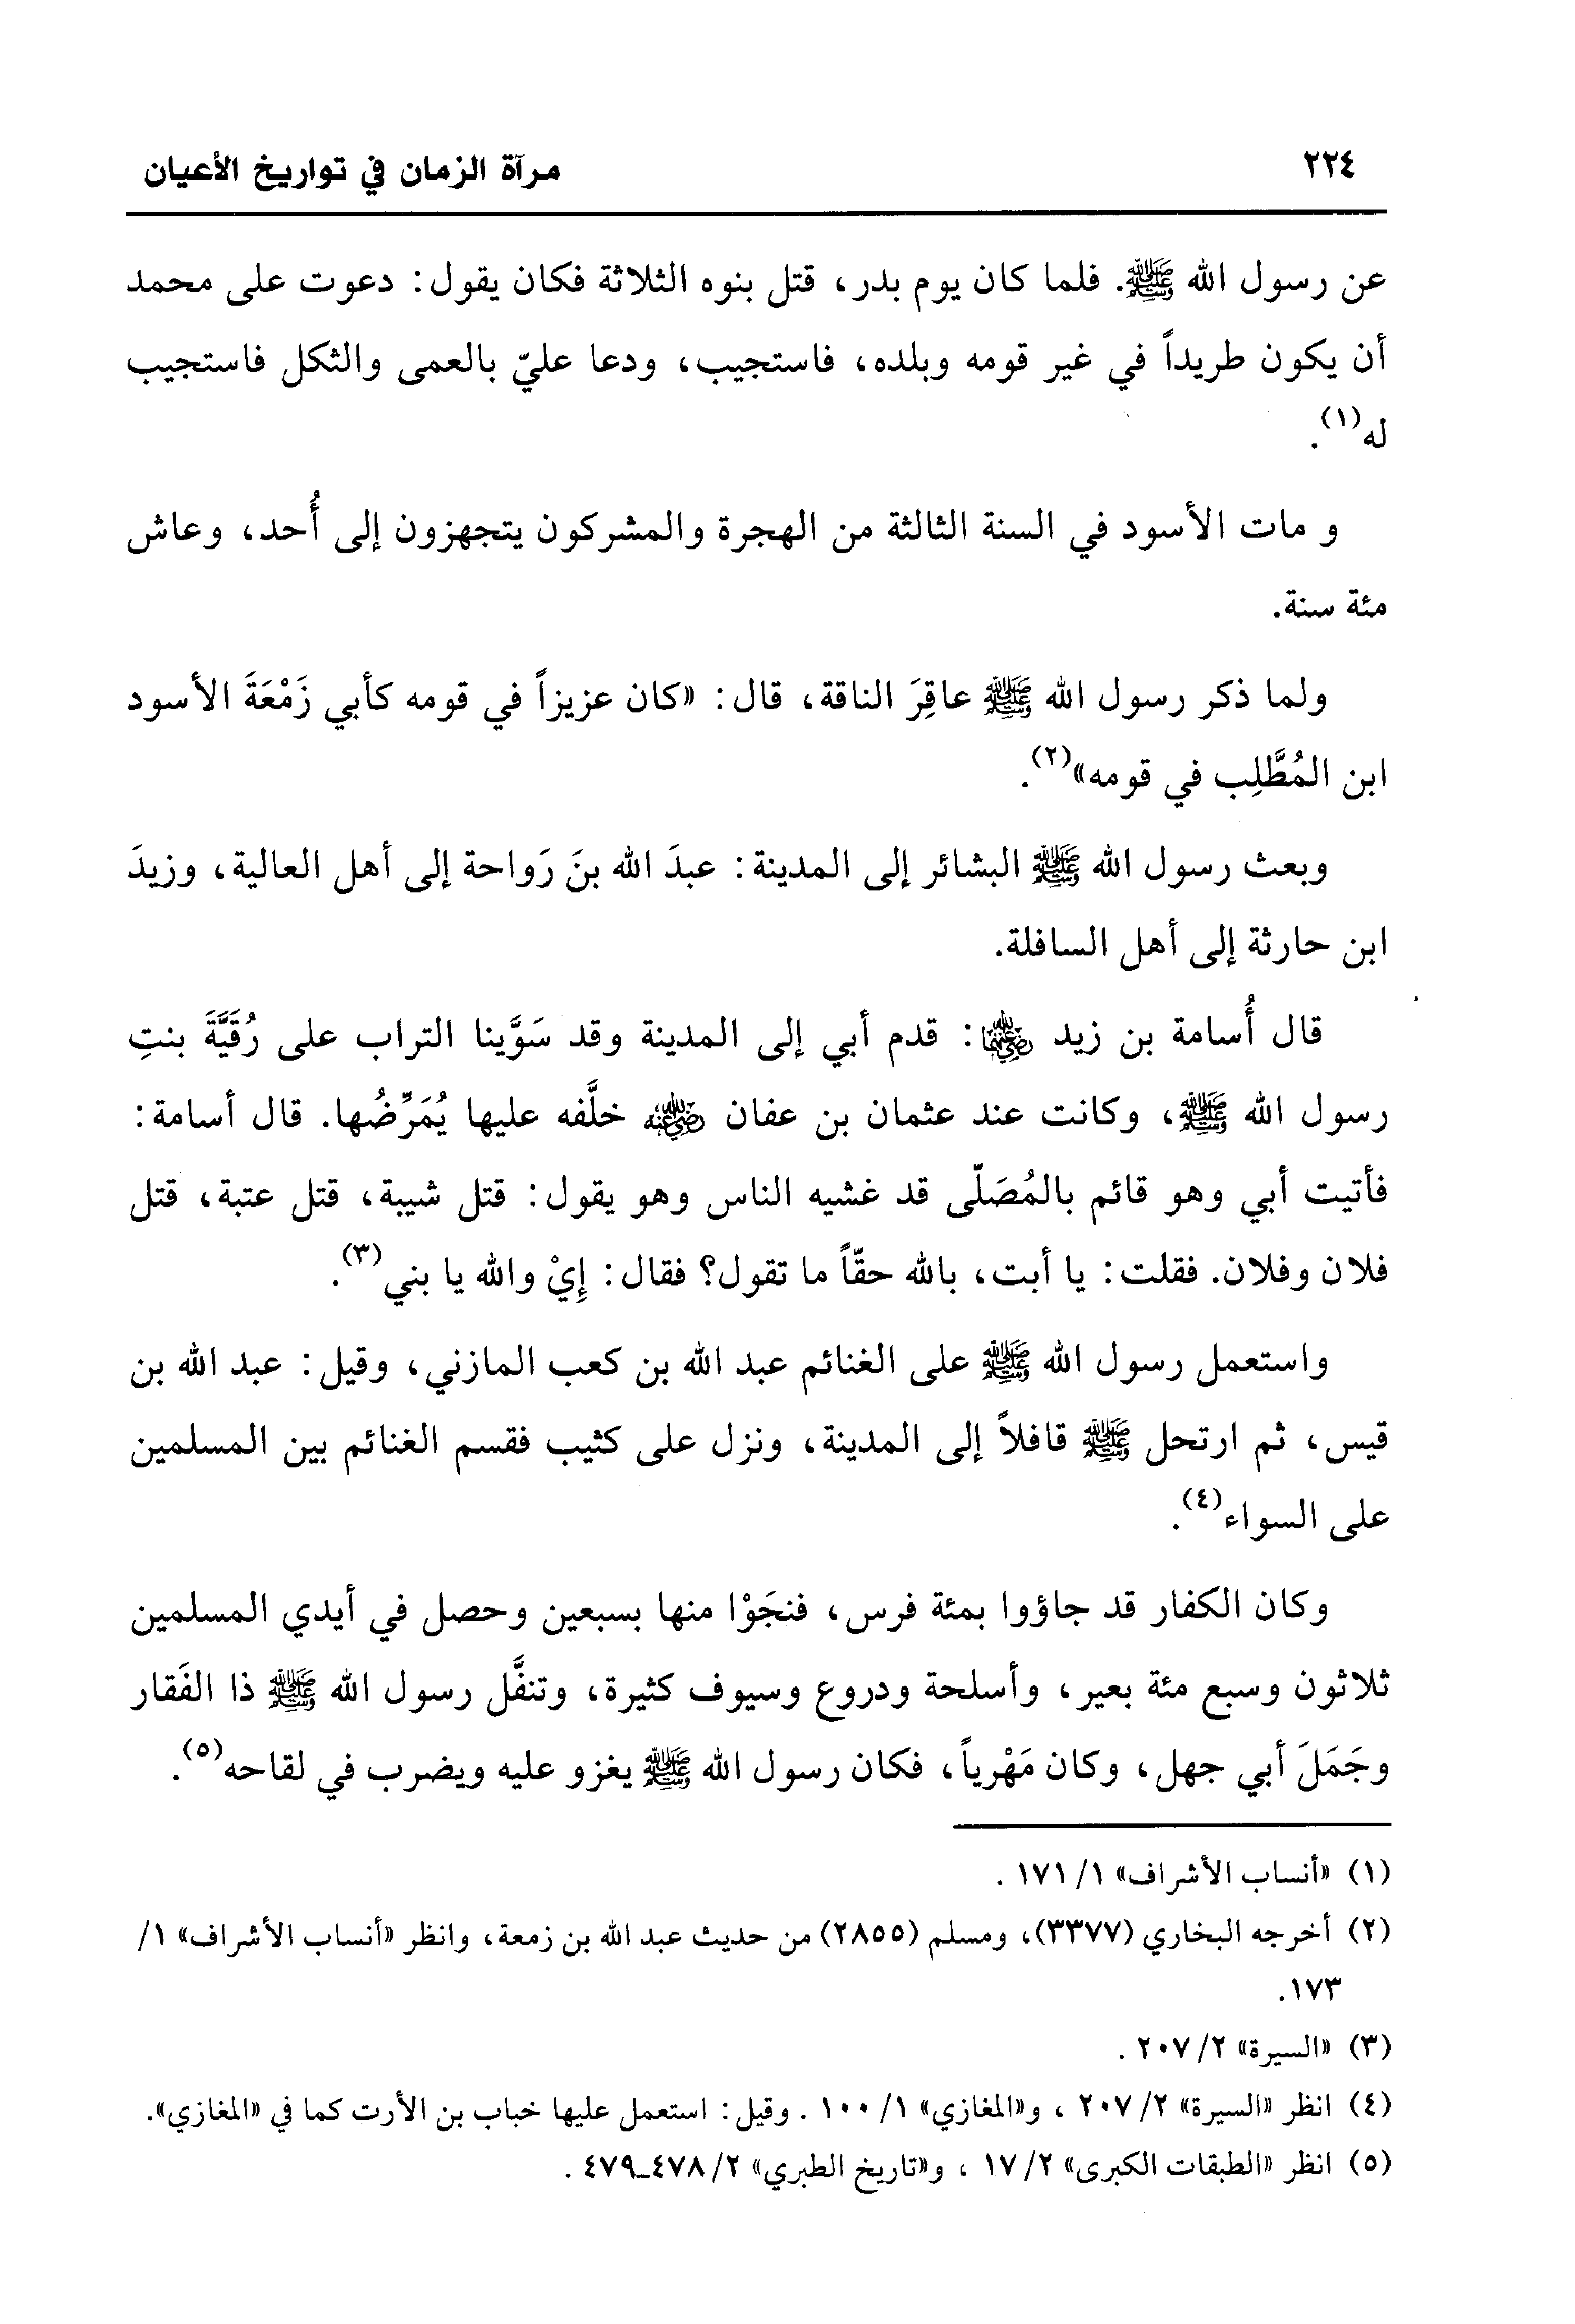 ٢٢٤ مرآة الزمان في تواريخ الأعيان
عن رسول الله ﷺ. فلما كان يوم بدر، قتل بنوه الثلاثة فكان يقول: دعوت على محمد
أن يكون طريداً في غير قومه وبلده، فاستجيب، ودعا عليّ بالعمى والثكل فاستجيب
له(١).
و مات الأسود في السنة الثالثة من الهجرة والمشركون يتجهزون إلى أُحد، وعاش
مئة سنة.
ولما ذكر رسول الله ﷺ عاقِرَ الناقة، قال: «كان عزيزاً في قومه كأبي زَمْعَةَ الأسود
ابن المُطَّلِب في قومه»(٢).
وبعث رسول الله ﷺ البشائر إلى المدينة: عبدَ الله بنَ رَواحة إلى أهل العالية، وزيدَ
ابن حارثة إلى أهل السافلة.
قال أُسامة بن زيد رضي الله عنهما: قدم أبي إلى المدينة وقد سَوَّينا التراب على رُقَيَّةَ بنتِ
رسول الله ﷺ، وكانت عند عثمان بن عفان رضي الله عنه خلَّفه عليها يُمَرِّضُها. قال أسامة:
فأتيت أبي وهو قائم بالمُصَلّى قد غشيه الناس وهو يقول: قتل شيبة، قتل عتبة، قتل
فلان وفلان. فقلت: يا أبت، بالله حقّاً ما تقول؟ فقال: إِيْ والله يا بني(٣).
واستعمل رسول الله ﷺ على الغنائم عبد الله بن كعب المازني، وقيل: عبد الله بن
قيس، ثم ارتحل ﷺ قافلاً إلى المدينة، ونزل على كثيب فقسم الغنائم بين المسلمين
على السواء(٤).
وكان الكفار قد جاؤوا بمئة فرس، فنجَوْا منها بسبعين وحصل في أيدي المسلمين
ثلاثون وسبع مئة بعير، وأسلحة ودروع وسيوف كثيرة، وتنفَّل رسول الله ﷺ ذا الفَقار
وجَمَلَ أبي جهل، وكان مَهْرياً، فكان رسول الله ﷺ يغزو عليه ويضرب في لقاحه(٥).
(١) «أنساب الأشراف» ١/ ١٧١ .
(٢) أخرجه البخاري (٣٣٧٧)، ومسلم (٢٨٥٥) من حديث عبد الله بن زمعة، وانظر «أنساب الأشراف» ١/
١٧٣.
(٣) «السيرة» ٢/ ٢٠٧ .
(٤) انظر «السيرة» ٢/ ٢٠٧ ، و«المغازي» ١/ ١٠٠ . وقيل: استعمل عليها خباب بن الأرت كما في «المغازي».
(٥) انظر «الطبقات الكبرى» ٢/ ١٧ ، و«تاريخ الطبري» ٢/ ٤٧٨ـ٤٧٩ .